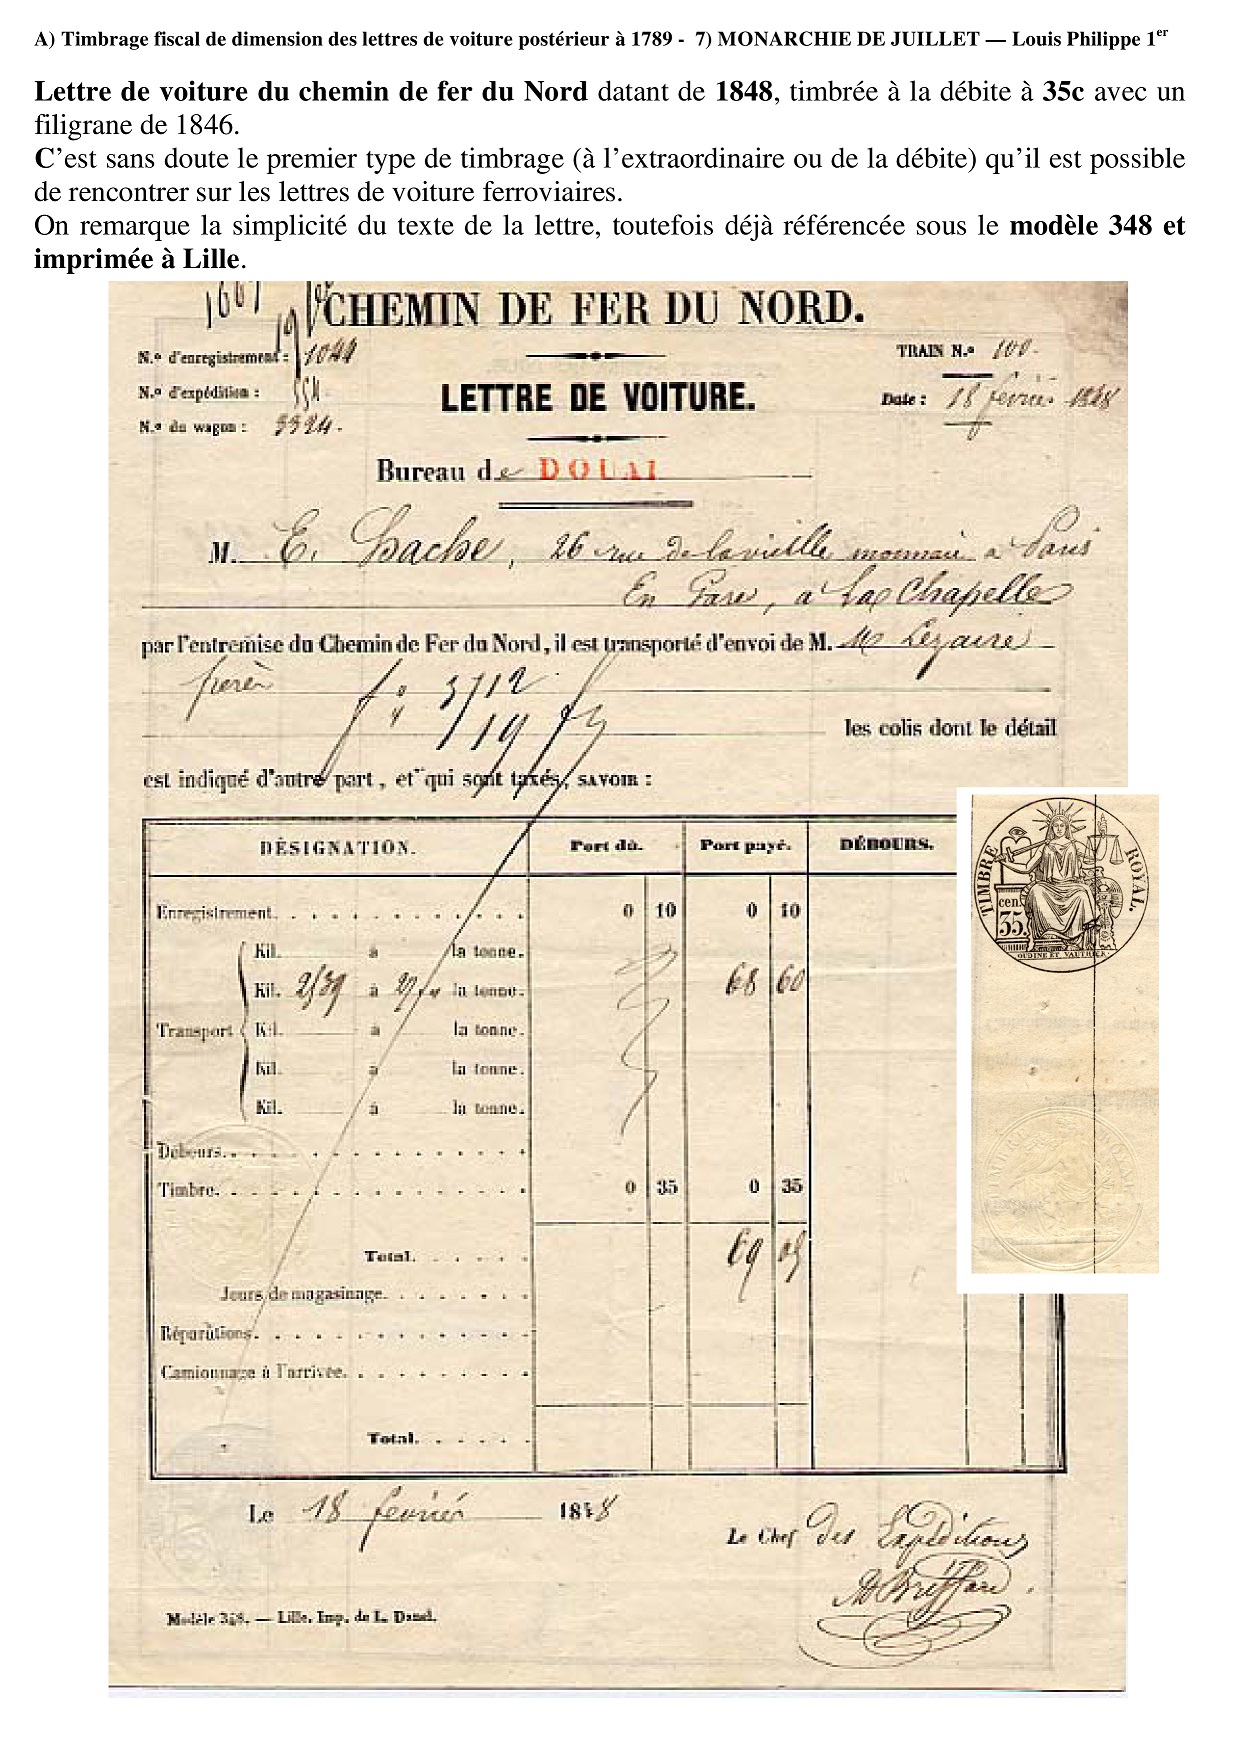 A) Timbrage fiscal de dimension des lettres de voiture postérieur à 1789 - 7) MONARCHIE DE JUILLET — Louis Philippe 1er
Lettre de voiture du chemin de fer du Nord datant de 1848, timbrée à la débite à 35c avec un
filigrane de 1846.
C’est sans doute le premier type de timbrage (à l’extraordinaire ou de la débite) qu’il est possible
de rencontrer sur les lettres de voiture ferroviaires.
On remarque la simplicité du texte de la lettre, toutefois déjà référencée sous le modèle 348 et
imprimée à Lille.
1661
CHEMIN DE FER DU NORD.
N.º d'enregistrement : 1044
TRAIN N.º 100
N.º d'expédition : 554
LETTRE DE VOITURE.
Date : 18 février 1848
N.º du wagon : 3324
Bureau de DOUAI
M. E. 26 rue de la vieille monnaie a Paris
En Gare, a La Chapelle
par l'entremise du Chemin de Fer du Nord, il est transporté d'envoi de M. Lezaire
frères
3712
19
les colis dont le détail
est indiqué d'autre part, et qui sont taxés, SAVOIR :
DÉSIGNATION. Port dû. Port payé. DÉBOURS.
Enregistrement. 0 10 0 10
Kil. à la tonne.
Kil. à la tonne. 68 60
Transport Kil. à la tonne.
Kil. à la tonne.
Kil. à la tonne.
Débours.
Timbre. 0 35 0 35
Total. 69 05
Jours de magasinage.
Réparations.
Camionnage à l'arrivée.
Total.
TIMBRE ROYAL.
cen. 35.
OUDINÉ ET VAUTHIER.
Le 18 février 1848
Le Chef des Expéditions
Modèle 348. — Lille. Imp. de L. Danel.